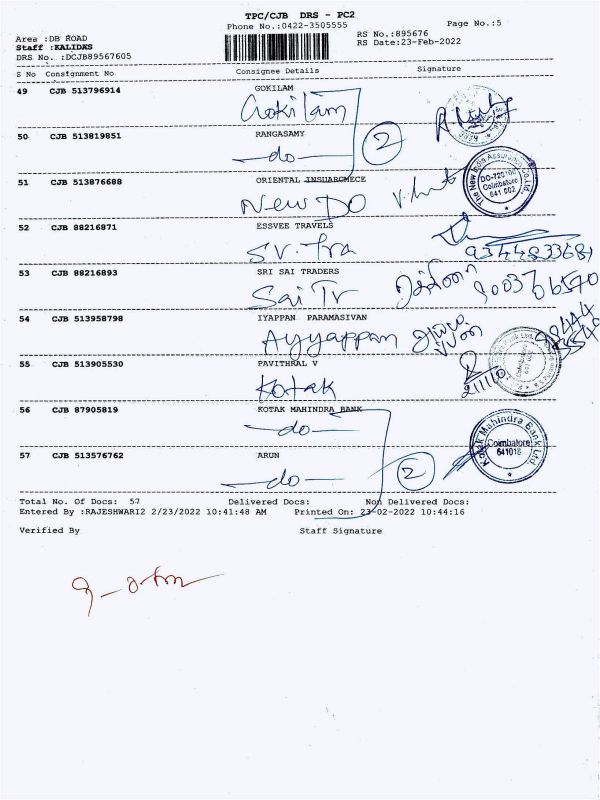 TPC/CJB DRS - PC2
Phone No.:0422-3505555
Page No.:5
Area :DB ROAD
RS No.:895676
Staff :KALIDAS
RS Date:23-Feb-2022
DRS No. :DCJB89567605
S No Consignment No Consignee Details Signature
49 CJB 513796914 GOKILAM
Gokilam
50 CJB 513819851 RANGASAMY
-do- 2
51 CJB 513876688 ORIENTAL INSUAROMECE
New DO
The New India Assurance Co.Ltd.
DO-720100
Coimbatore
641 002
52 CJB 88216871 ESSVEE TRAVELS
SV. Tra 9344833681
53 CJB 88216893 SRI SAI TRADERS
Sai Tr
54 CJB 513958798 IYAPPAN PARAMASIVAN
Ayyappan
55 CJB 513905530 PAVITHRAL V
Kotak
56 CJB 87905819 KOTAK MAHINDRA BANK
-do-
Kotak Mahindra Bank Ltd.
Coimbatore
641018
57 CJB 513576762 ARUN
-do- 2
Total No. Of Docs: 57 Delivered Docs: Non Delivered Docs:
Entered By :RAJESHWARI2 2/23/2022 10:41:48 AM Printed On: 23-02-2022 10:44:16
Verified By Staff Signature